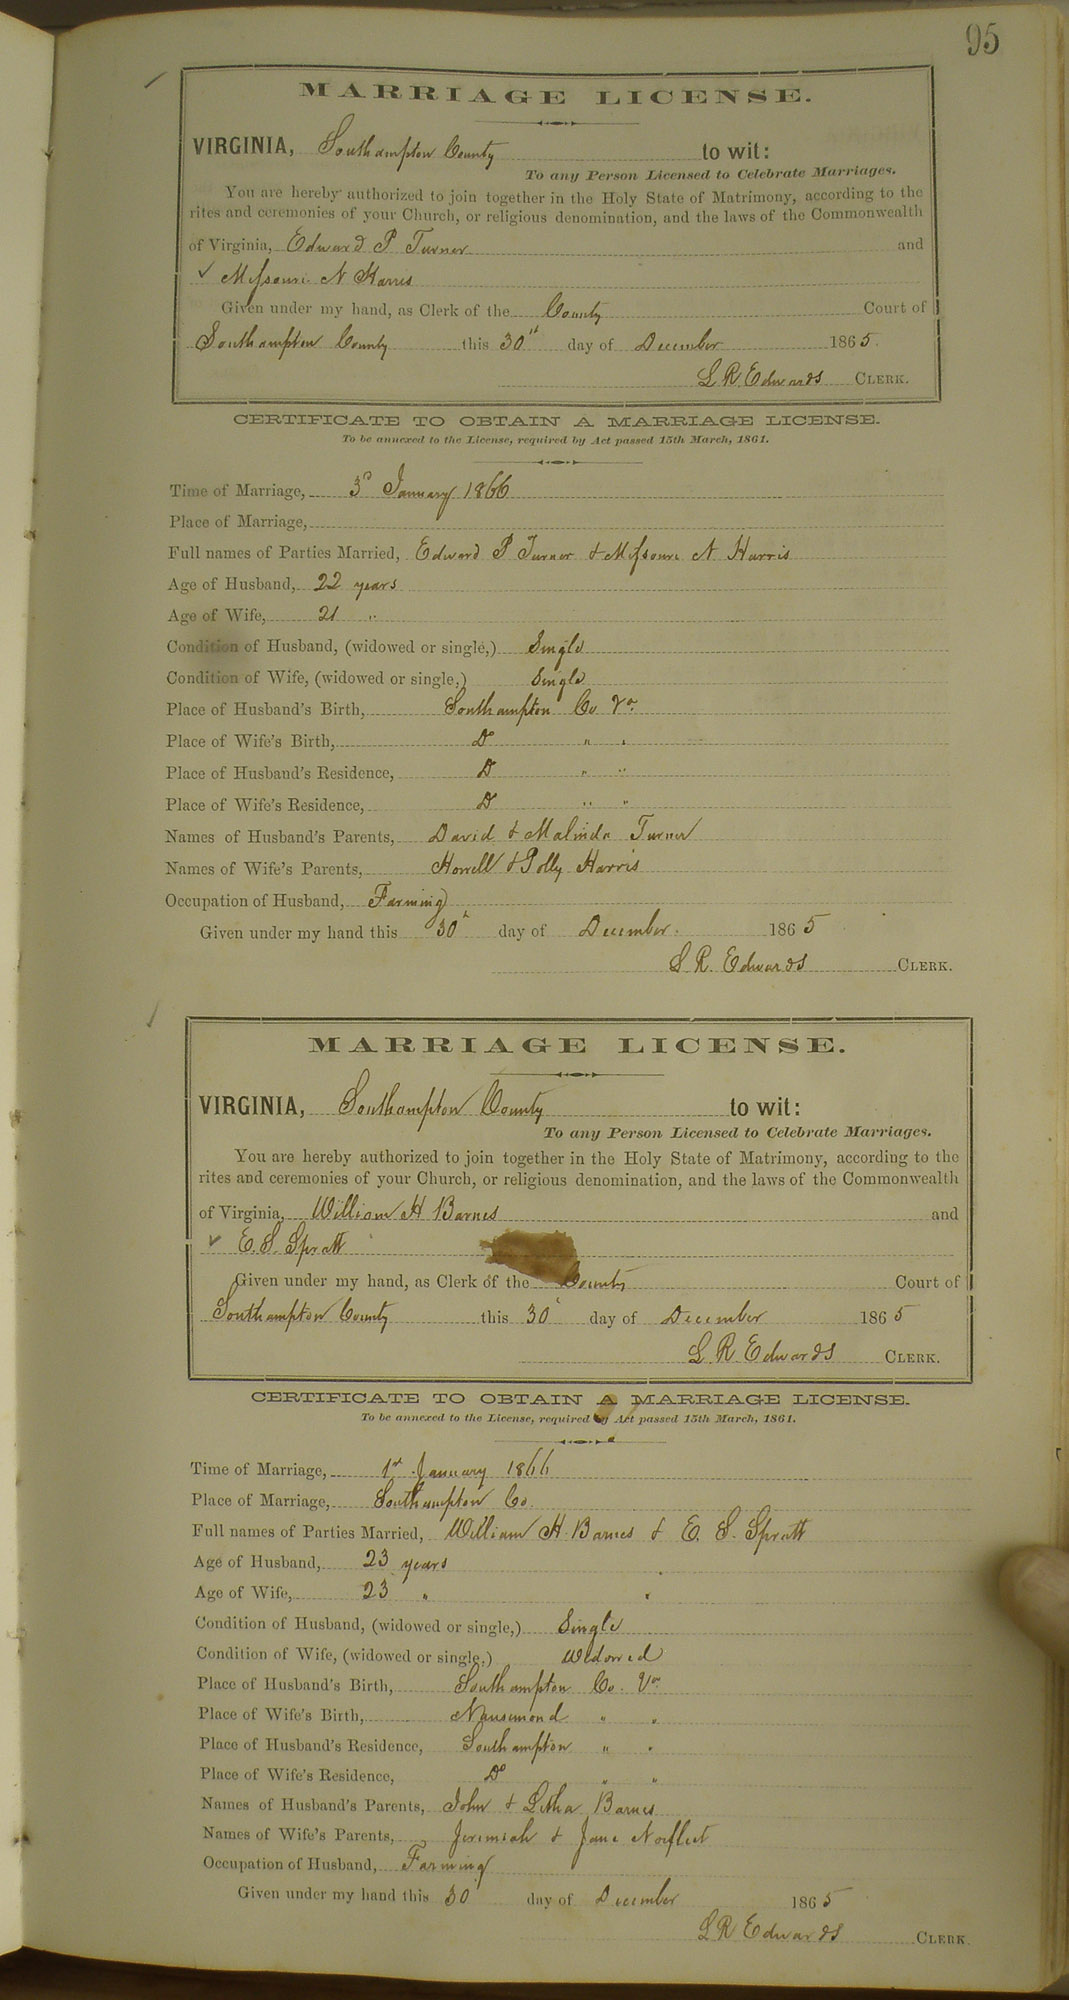 95
MARRIAGE LICENSE.
VIRGINIA, Southampton County to wit:
To any Person Licensed to Celebrate Marriages.
You are hereby authorized to join together in the Holy State of Matrimony, according to the
rites and ceremonies of your Church, or religious denomination, and the laws of the Commonwealth
of Virginia, Edward P Turner and
✓ Missouri N Harris
Given under my hand, as Clerk of the County Court of
Southampton County this 30th day of December 1865.
L R Edwards CLERK.
CERTIFICATE TO OBTAIN A MARRIAGE LICENSE.
To be annexed to the License, required by Act passed 15th March, 1861.
Time of Marriage, 3d January 1866
Place of Marriage,
Full names of Parties Married, Edward P Turner & Missouri N Harris
Age of Husband, 22 years
Age of Wife, 21 "
Condition of Husband, (widowed or single,) Single
Condition of Wife, (widowed or single,) Single
Place of Husband's Birth, Southampton Co Va
Place of Wife's Birth, Do " "
Place of Husband's Residence, Do " "
Place of Wife's Residence, Do " "
Names of Husband's Parents, David & Malinda Turner
Names of Wife's Parents, Howell & Polly Harris
Occupation of Husband, Farming
Given under my hand this 30th day of December. 1865
L R. Edwards CLERK.
MARRIAGE LICENSE.
VIRGINIA, Southampton County to wit:
To any Person Licensed to Celebrate Marriages.
You are hereby authorized to join together in the Holy State of Matrimony, according to the
rites and ceremonies of your Church, or religious denomination, and the laws of the Commonwealth
of Virginia, William H Barnes and
✓ E. S. Spratt
Given under my hand, as Clerk of the County Court of
Southampton County this 30 day of December 1865
L R. Edwards CLERK.
CERTIFICATE TO OBTAIN A MARRIAGE LICENSE.
To be annexed to the License, required by Act passed 15th March, 1861.
Time of Marriage, 1st January 1866
Place of Marriage, Southampton Co.
Full names of Parties Married, William H Barnes & E. S. Spratt
Age of Husband, 23 years
Age of Wife, 23 "
Condition of Husband, (widowed or single,) Single
Condition of Wife, (widowed or single,) Widowed
Place of Husband's Birth, Southampton Co. Va
Place of Wife's Birth, Nansemond " "
Place of Husband's Residence, Southampton " "
Place of Wife's Residence, Do " "
Names of Husband's Parents, John & Litha Barnes
Names of Wife's Parents, Jeremiah & Jane Norfleet
Occupation of Husband, Farming
Given under my hand this 30 day of December 1865
L R Edwards CLERK.